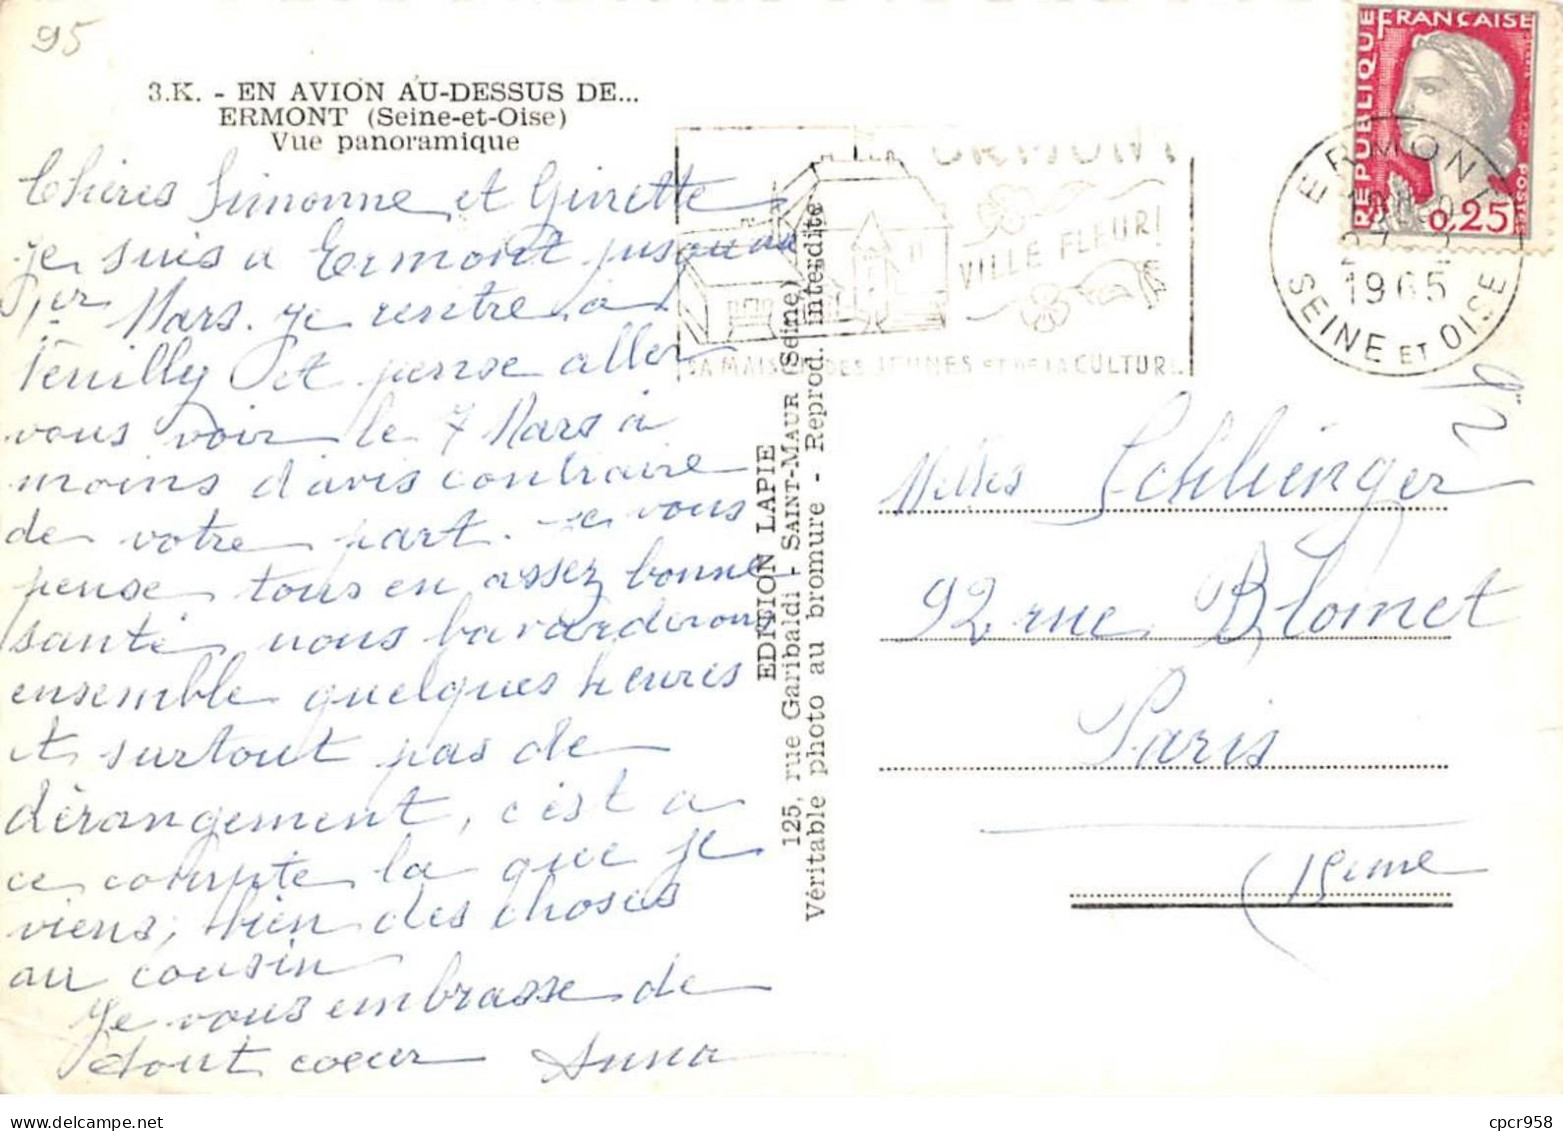 95
3.K. - EN AVION AU-DESSUS DE...
ERMONT (Seine-et-Oise)
Vue panoramique
Chères Simonne et Ginette
je suis à Ermont jusqu'au
1er Mars. je rentre à
Neuilly et pense aller
vous voir le 7 Mars à
moins d'avis contraire
de votre part. je vous
pense tous en assez bonne
santé, nous bavarderons
ensemble quelques heures
et surtout pas de
dérangement, c'est a
ce compte la que je
viens, bien des choses
au cousin
Je vous embrasse de
tout coeur Anna
EDITION LAPIE
125, rue Garibaldi - SAINT-MAUR (Seine)
Véritable photo au bromure - Reprod. interdite
ERMONT
VILLE FLEURI
SA MAISON DES JEUNES ET DE LA CULTURE
RÉPUBLIQUE FRANÇAISE
0,25
POSTES
ERMONT
1965
SEINE ET OISE
Melles Schlienger
92 rue Blomet
Paris
(Seine
cpcr958